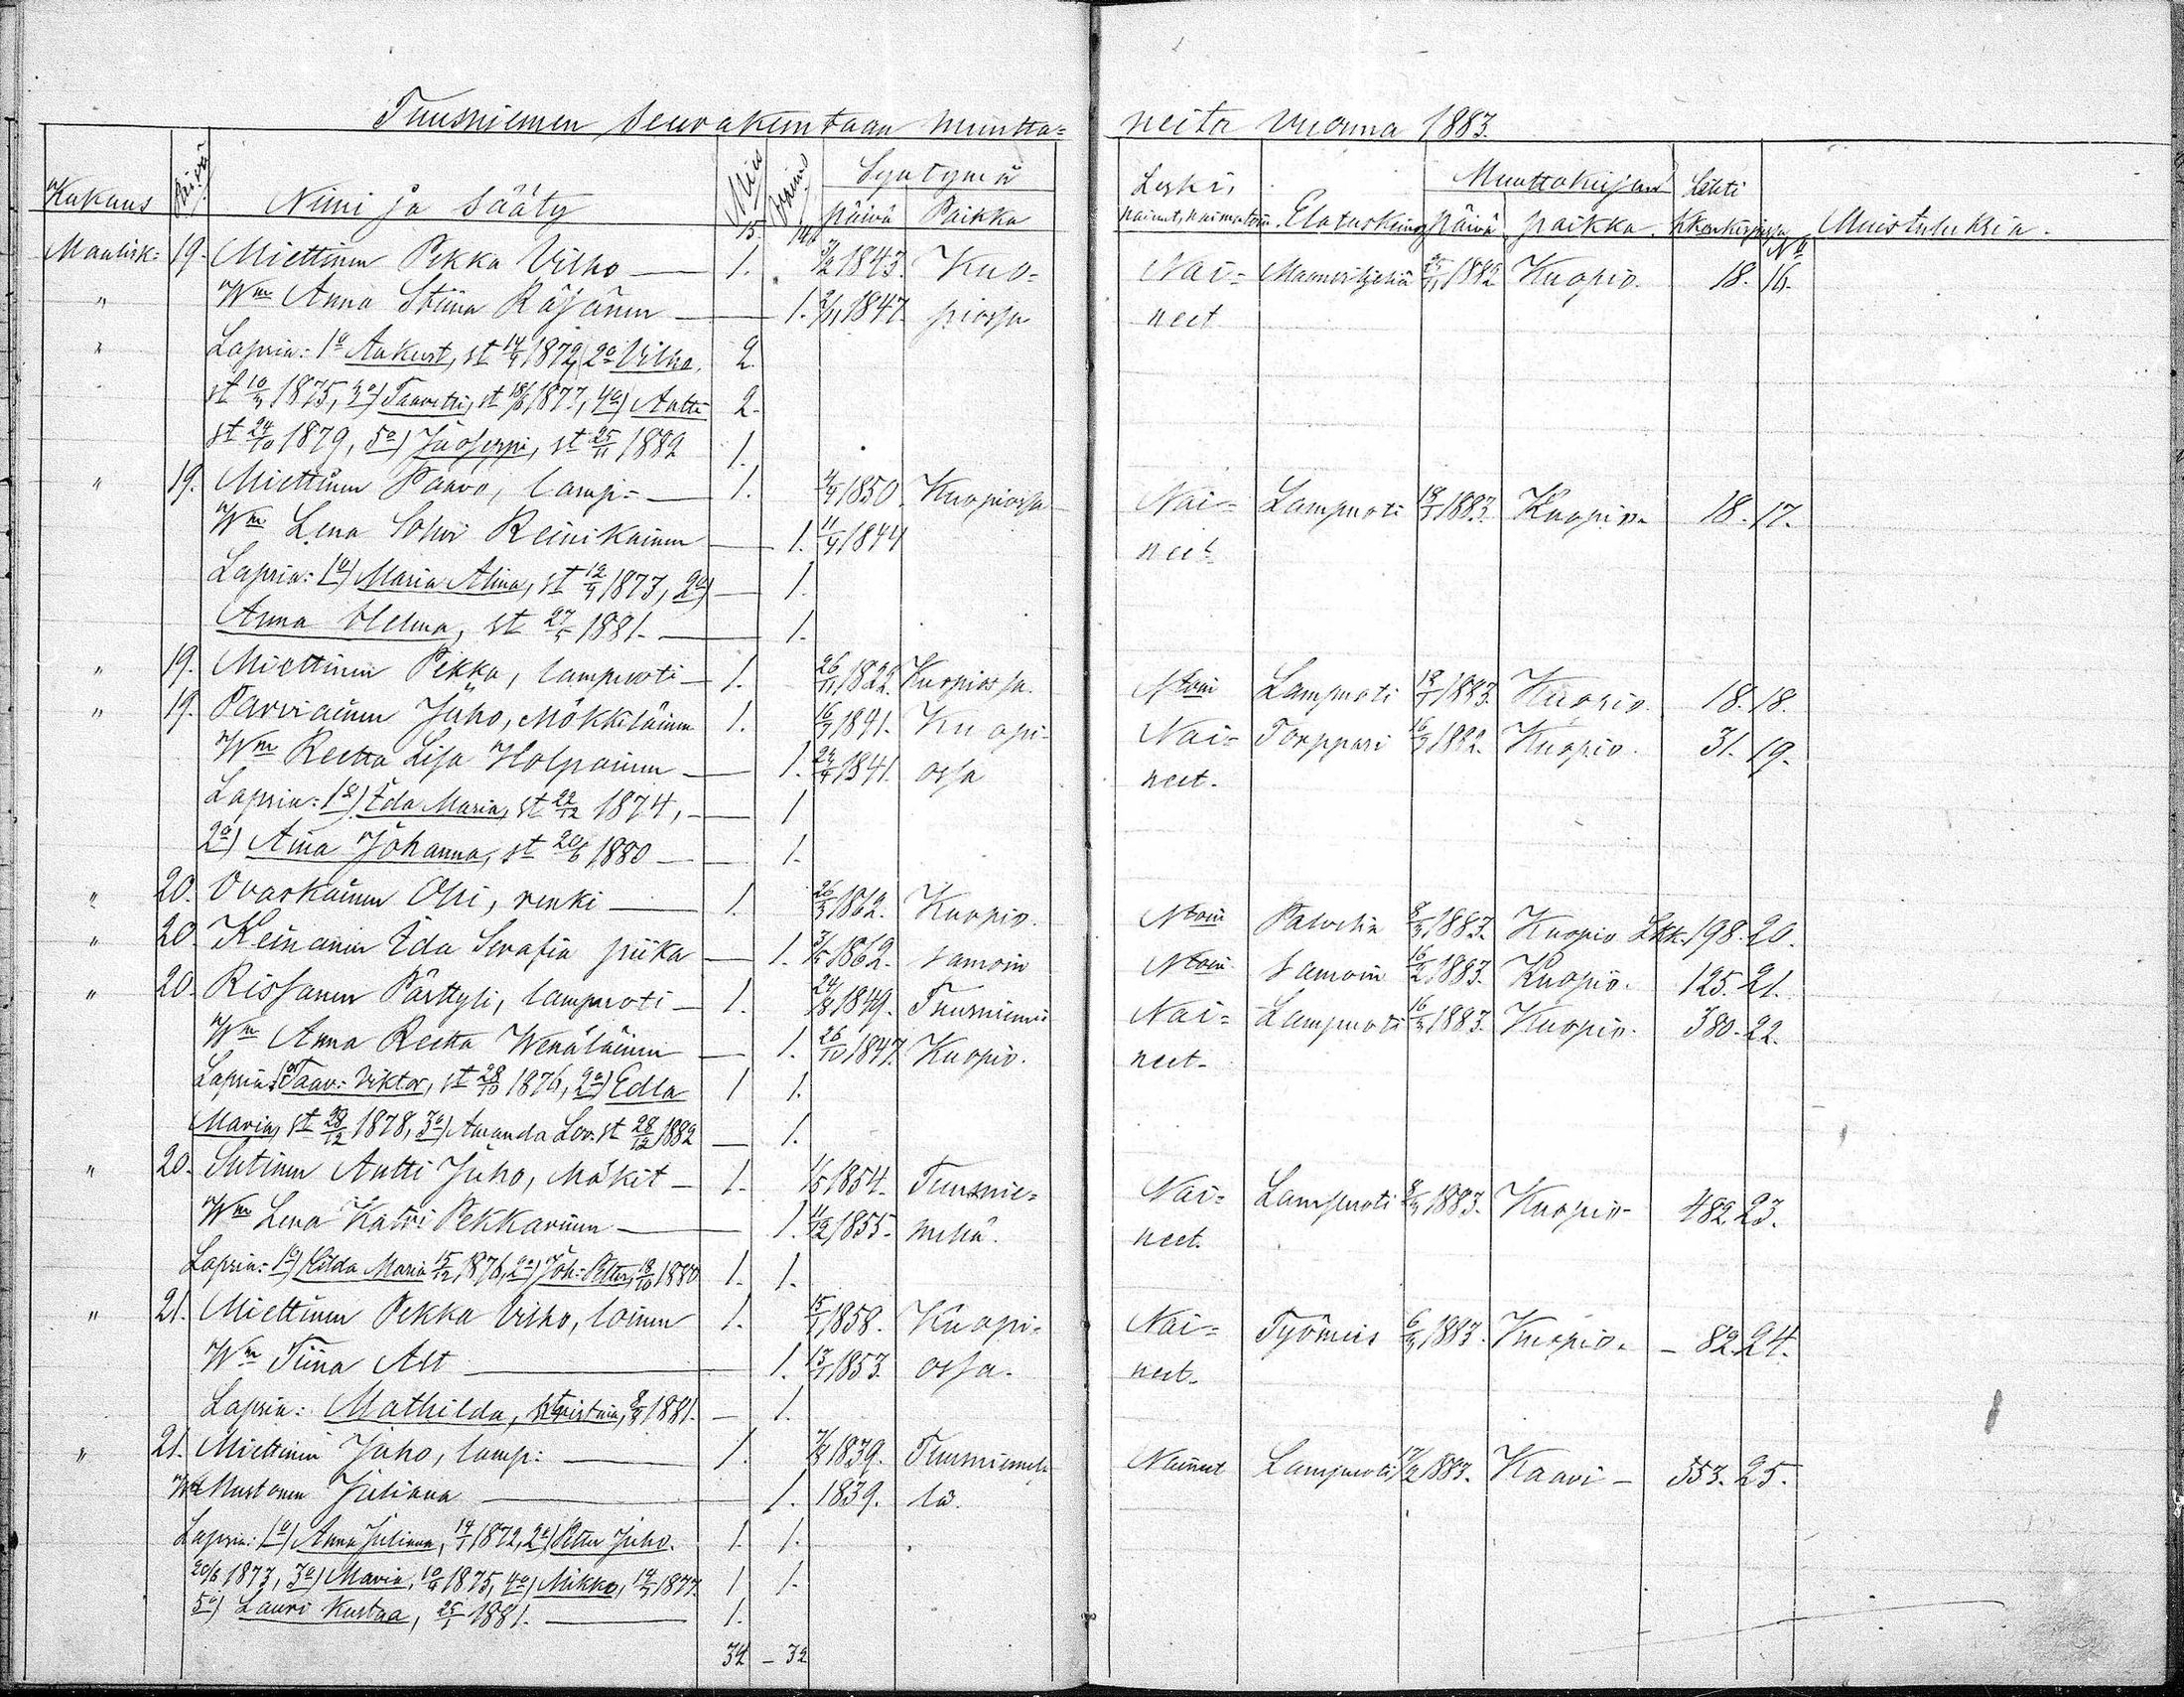 Tuusniemen Seurakuntaan muutta=
neita vuonna 1883.
Kukaus Päivä Nimi ja Sääty Mies Vaimo Syntymä päivä Paikka
Leski, nainut, naimatoin. Elatuskeino Muuttokirjan päivä paikka. Lehti Rkonkirjassa No Muistutuksia.
15 14
Maalisk: 19. Miettinen Pekka Vilho — 1. 1843. Kuo= Nai= 1882 Kuopio. 18. 16.
" Wmo Anna Stiina Räjänen — 1. 1847. piossa neet
" Lapsia: 1o Aukust, st 14/4 1872, 2o Vilho, 2
st 10/4 1875, 3o) Taavetti, st 18/6 1877, 4o) Antti 2.
st 24/10 1879, 5o) Jooseppi, st 25/11 1882 1.
" 19. Miettinen Paavo, lamp:= — 1. 1850. Kuopiossa Nai= Lampuoti 1883. Kuopio. 18. 17.
Wmo Lena Sohvi Reinikainen — 1. 11/4 1844 neet
Lapsia: 1o) Maria Alina, st 12/4 1873, 2o) — 1.
Anna Helena, st 27/5 1881. — 1.
" 19. Miettinen Pekka, lampuoti — 1. 26/11 1822. Kuopiossa. Ntoin Lampuoti 1883. Kuopio. 18. 18.
" 19. Parviainen Juho, Mökkiläinen 1. 1841. Kuopi- Nai= Torppari 1882. Kuopio. 31. 19.
Wmo Reetta Lisa Holpainen — 1. 1841. ossa neet.
Lapsia: 1o) Ida Maria, st 22/12 1874, — 1
2o) Aina Johanna, st 20/6 1880 — 1.
" 20. Ovaskainen Olli, renki — 1. 26/3 1862. Kuopio. Ntoin Palvelia 8/3 1883. Kuopio Lkk. 198. 20.
" 20. Keinänen Ida Serafia piika — 1. 1862. samoin Ntoin samoin 16/2 1883. Kuopio. 125. 21.
" 20. Rissanen Pärttyli, lampuoti — 1. 24/8 1849. Tuusniemi Nai= Lampuoti 16/3 1883. Kuopio. 380. 22.
Wmo Anna Reetta Wenäläinen — 1. 26/10 1847. Kuopio. neet.
Lapsia: 1o Taav: Viktor, st 28/10 1876, 2o) Edla 1 1.
Maria, st 28/12 1878, 3o) Amanda Lov. st 28/12 1882 — 1.
" 20. Sutinen Antti Juho, Mäkit — 1. 1/5 1854. Tuusnie= Nai= Lampuoti 8/3 1883. Kuopio. 482. 23.
Wmo Lena Katri Pekkarinen — 1. 11/12 1855. mellä. neet.
Lapsia: 1o) Hilda Maria 15/12 1876, 2o) Joh: Petter, 18/10 1880 1. 1.
" 21. Miettinen Pekka Vilho, loinen 1. 1858. Kuopi= Nai= Työmies 6/3 1883. Kuopio. — 82. 24.
Wmo Tiina Alt — 1. 1853. ossa. neet.
Lapsia: Mathilda, 1881. — 1.
" 21. Miettinen Juho, lamp: — 1. 1839. Tuusniemel= Nainut Lampuoti 17/2 1883. Kaavi — 553. 25.
Mustonen Juliana — 1. 1839. lä.
Lapsia: 1o) Anna Juliana, 1872, 2o) Petter Juho. 1. 1.
20/6 1873, 3o) Maria, 1875, 4o) Mikko, 1877. 1 1.
5o) Lauri Kustaa, 1881. — 1.
32 — 32